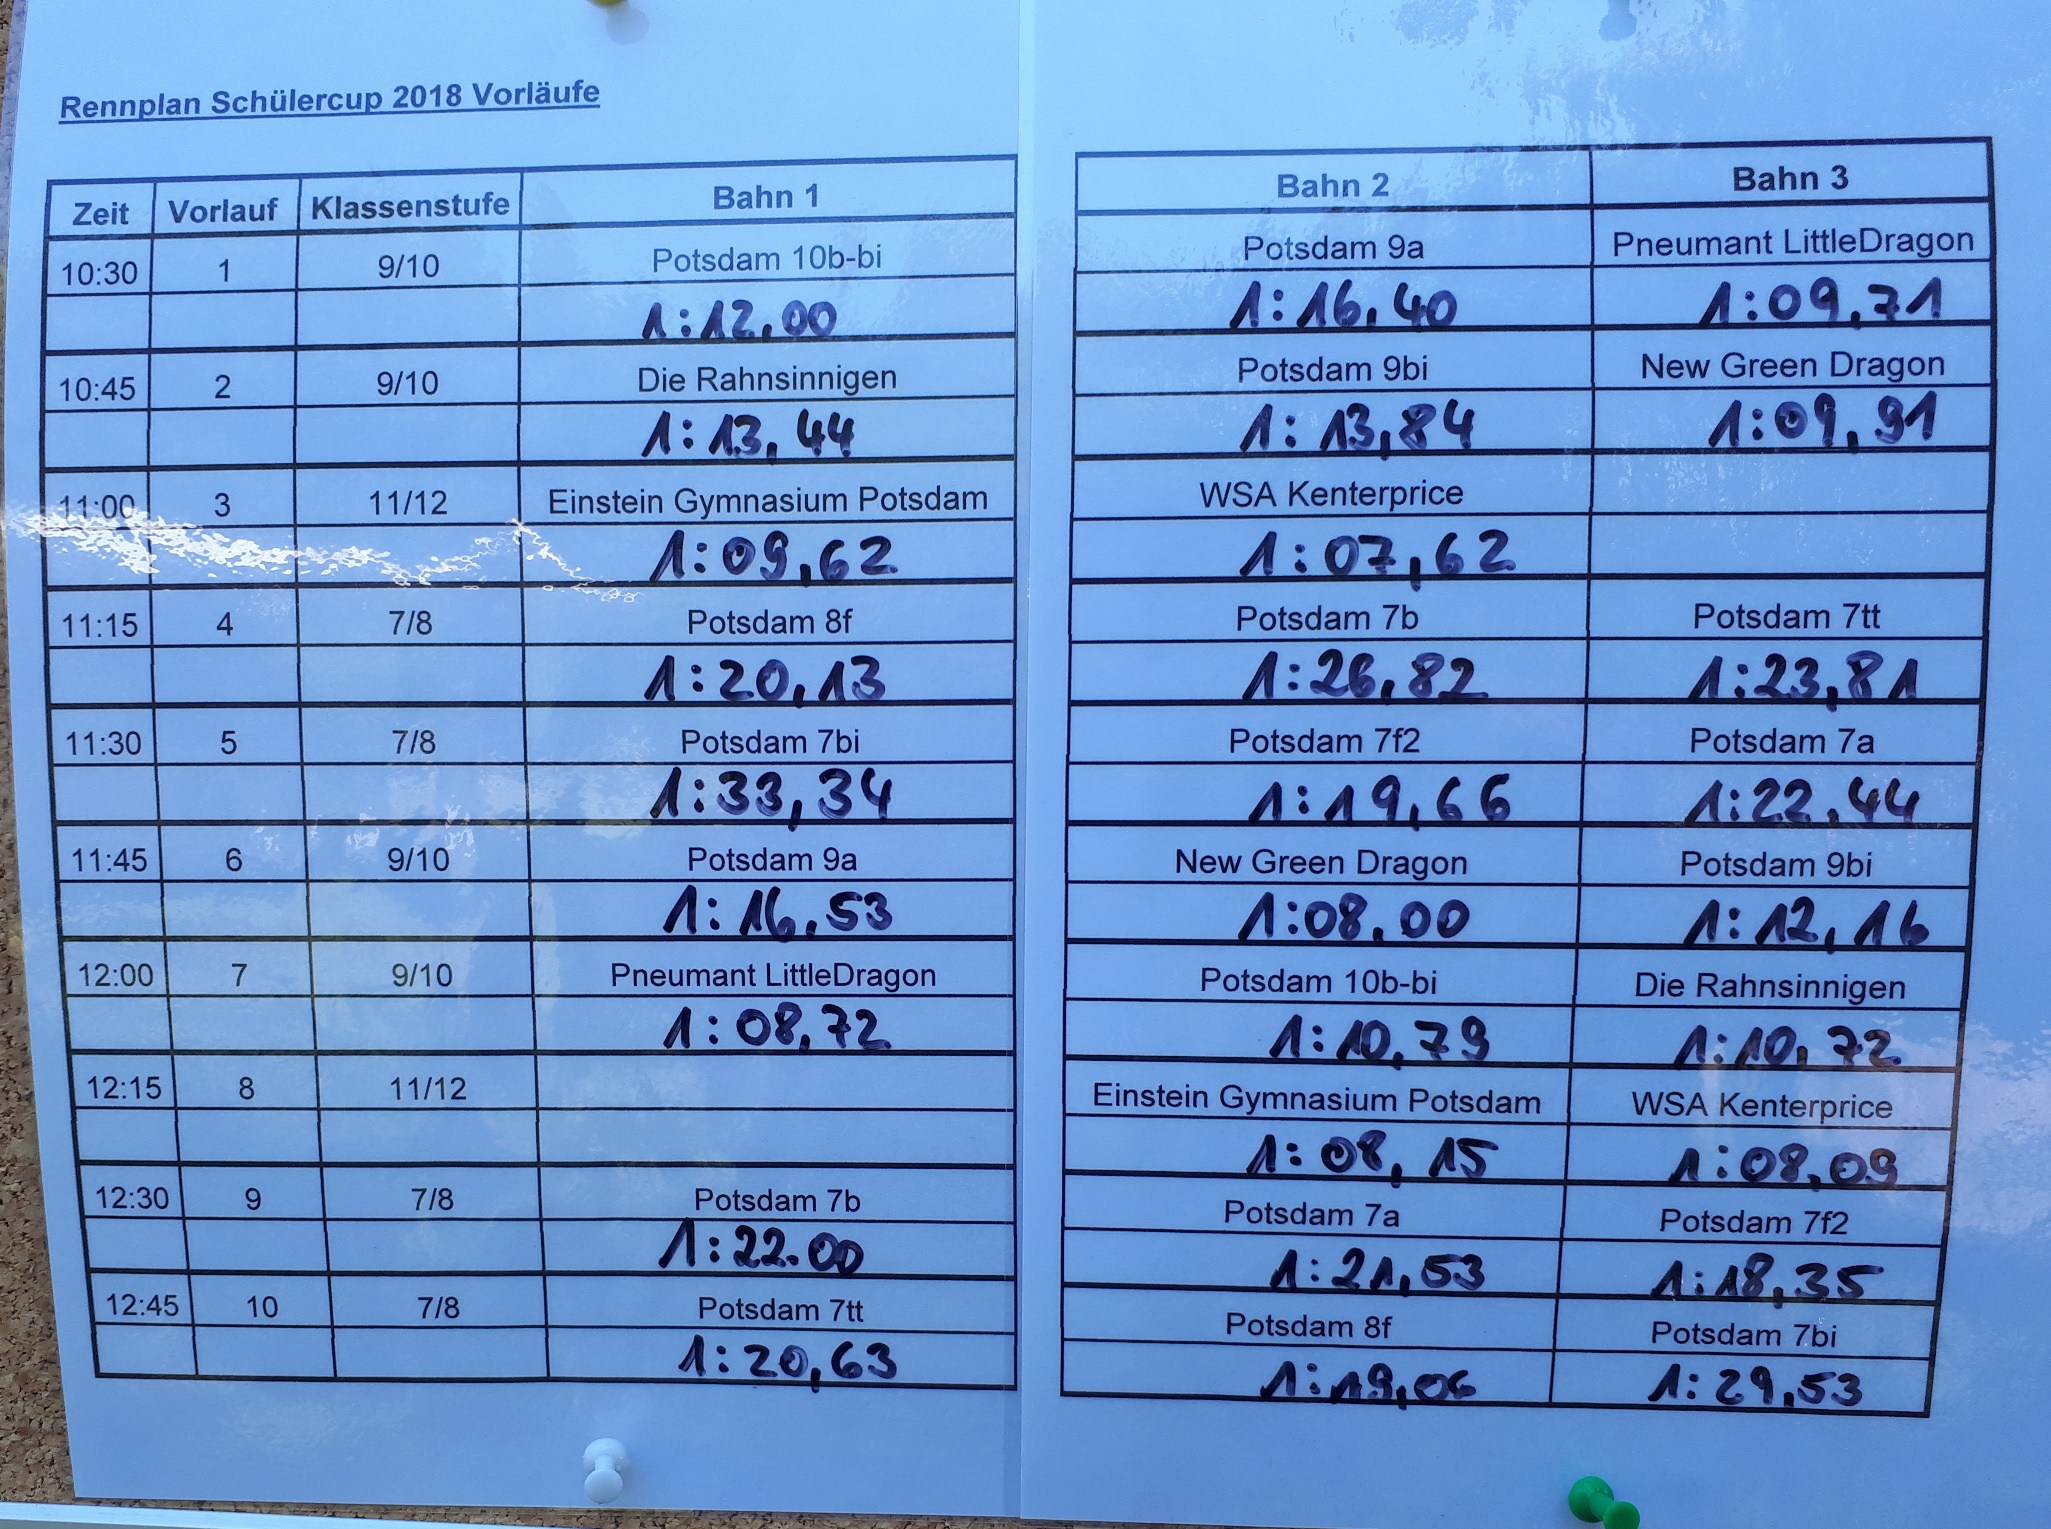 Rennplan Schülercup 2018 Vorläufe
Zeit Vorlauf Klassenstufe Bahn 1 Bahn 2 Bahn 3
10:30 1 9/10 Potsdam 10b-bi Potsdam 9a Pneumant LittleDragon
1:12,00 1:16,40 1:09,71
10:45 2 9/10 Die Rahnsinnigen Potsdam 9bi New Green Dragon
1:13,44 1:13,84 1:09,91
11:00 3 11/12 Einstein Gymnasium Potsdam WSA Kenterprice
1:09,62 1:07,62
11:15 4 7/8 Potsdam 8f Potsdam 7b Potsdam 7tt
1:20,13 1:26,82 1:23,81
11:30 5 7/8 Potsdam 7bi Potsdam 7f2 Potsdam 7a
1:33,34 1:19,66 1:22,44
11:45 6 9/10 Potsdam 9a New Green Dragon Potsdam 9bi
1:16,53 1:08,00 1:12,16
12:00 7 9/10 Pneumant LittleDragon Potsdam 10b-bi Die Rahnsinnigen
1:08,72 1:10,79 1:10,72
12:15 8 11/12 Einstein Gymnasium Potsdam WSA Kenterprice
1:08,15 1:08,09
12:30 9 7/8 Potsdam 7b Potsdam 7a Potsdam 7f2
1:22.00 1:21,53 1:18,35
12:45 10 7/8 Potsdam 7tt Potsdam 8f Potsdam 7bi
1:20,63 1:19,06 1:29,53